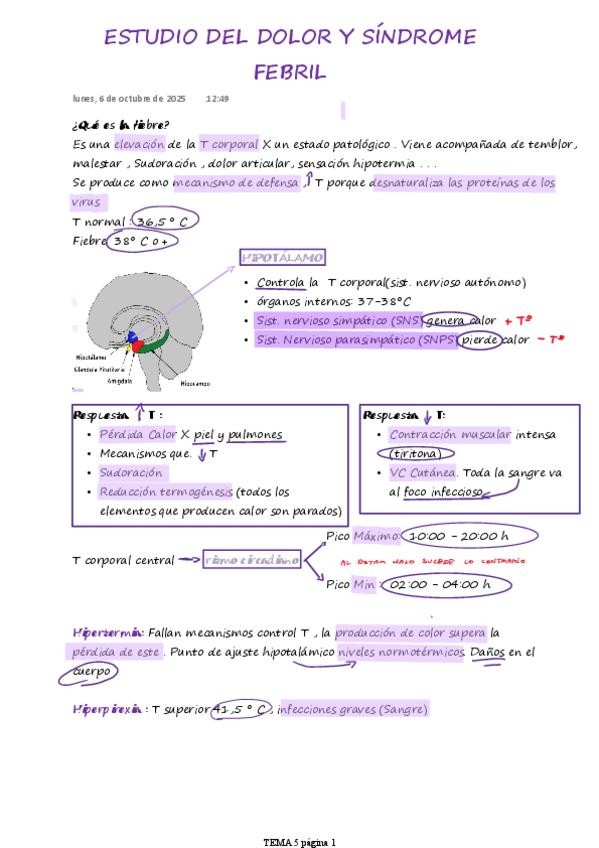 ESTUDIO DEL DOLOR Y SÍNDROME
FEBRIL
lunes, 6 de octubre de 2025 12:49
¿Qué es la fiebre?
Es una elevación de la T corporal X un estado patológico . Viene acompañada de temblor,
malestar , Sudoración , dolor articular, sensación hipotermia . . .
Se produce como mecanismo de defensa , ↑ T porque desnaturaliza las proteínas de los
virus
T normal : 36,5 ° C
Fiebre 38° C o +
HIPOTÁLAMO
• Controla la T corporal(sist. nervioso autónomo)
• órganos internos: 37-38°C
• Sist. nervioso simpático (SNS) genera calor + Tª
• Sist. Nervioso parasimpático (SNPS) pierde calor - Tª
Hipotálamo
Glándula Pituitaria
Amígdala
Hipocampo
Respuesta ↑ T :
• Pérdida Calor X piel y pulmones
• Mecanismos que. ↓ T
• Sudoración
• Reducción termogénesis (todos los
elementos que producen calor son parados)
Respuesta ↓ T:
• Contracción muscular intensa
(tiritona)
• VC Cutánea. Toda la sangre va
al foco infeccioso
Pico Máximo: 10:00 - 20:00 h
T corporal central → ritmo circadiano
AL ESTAR MALO SUCEDE LO CONTRARIO
Pico Min : 02:00 - 04:00 h
Hipertermia: Fallan mecanismos control T , la producción de color supera la
pérdida de este . Punto de ajuste hipotalámico niveles normotérmicos. Daños en el
cuerpo
Hiperpirexia : T superior 41,5 ° C , infecciones graves (Sangre)
TEMA 5 página 1